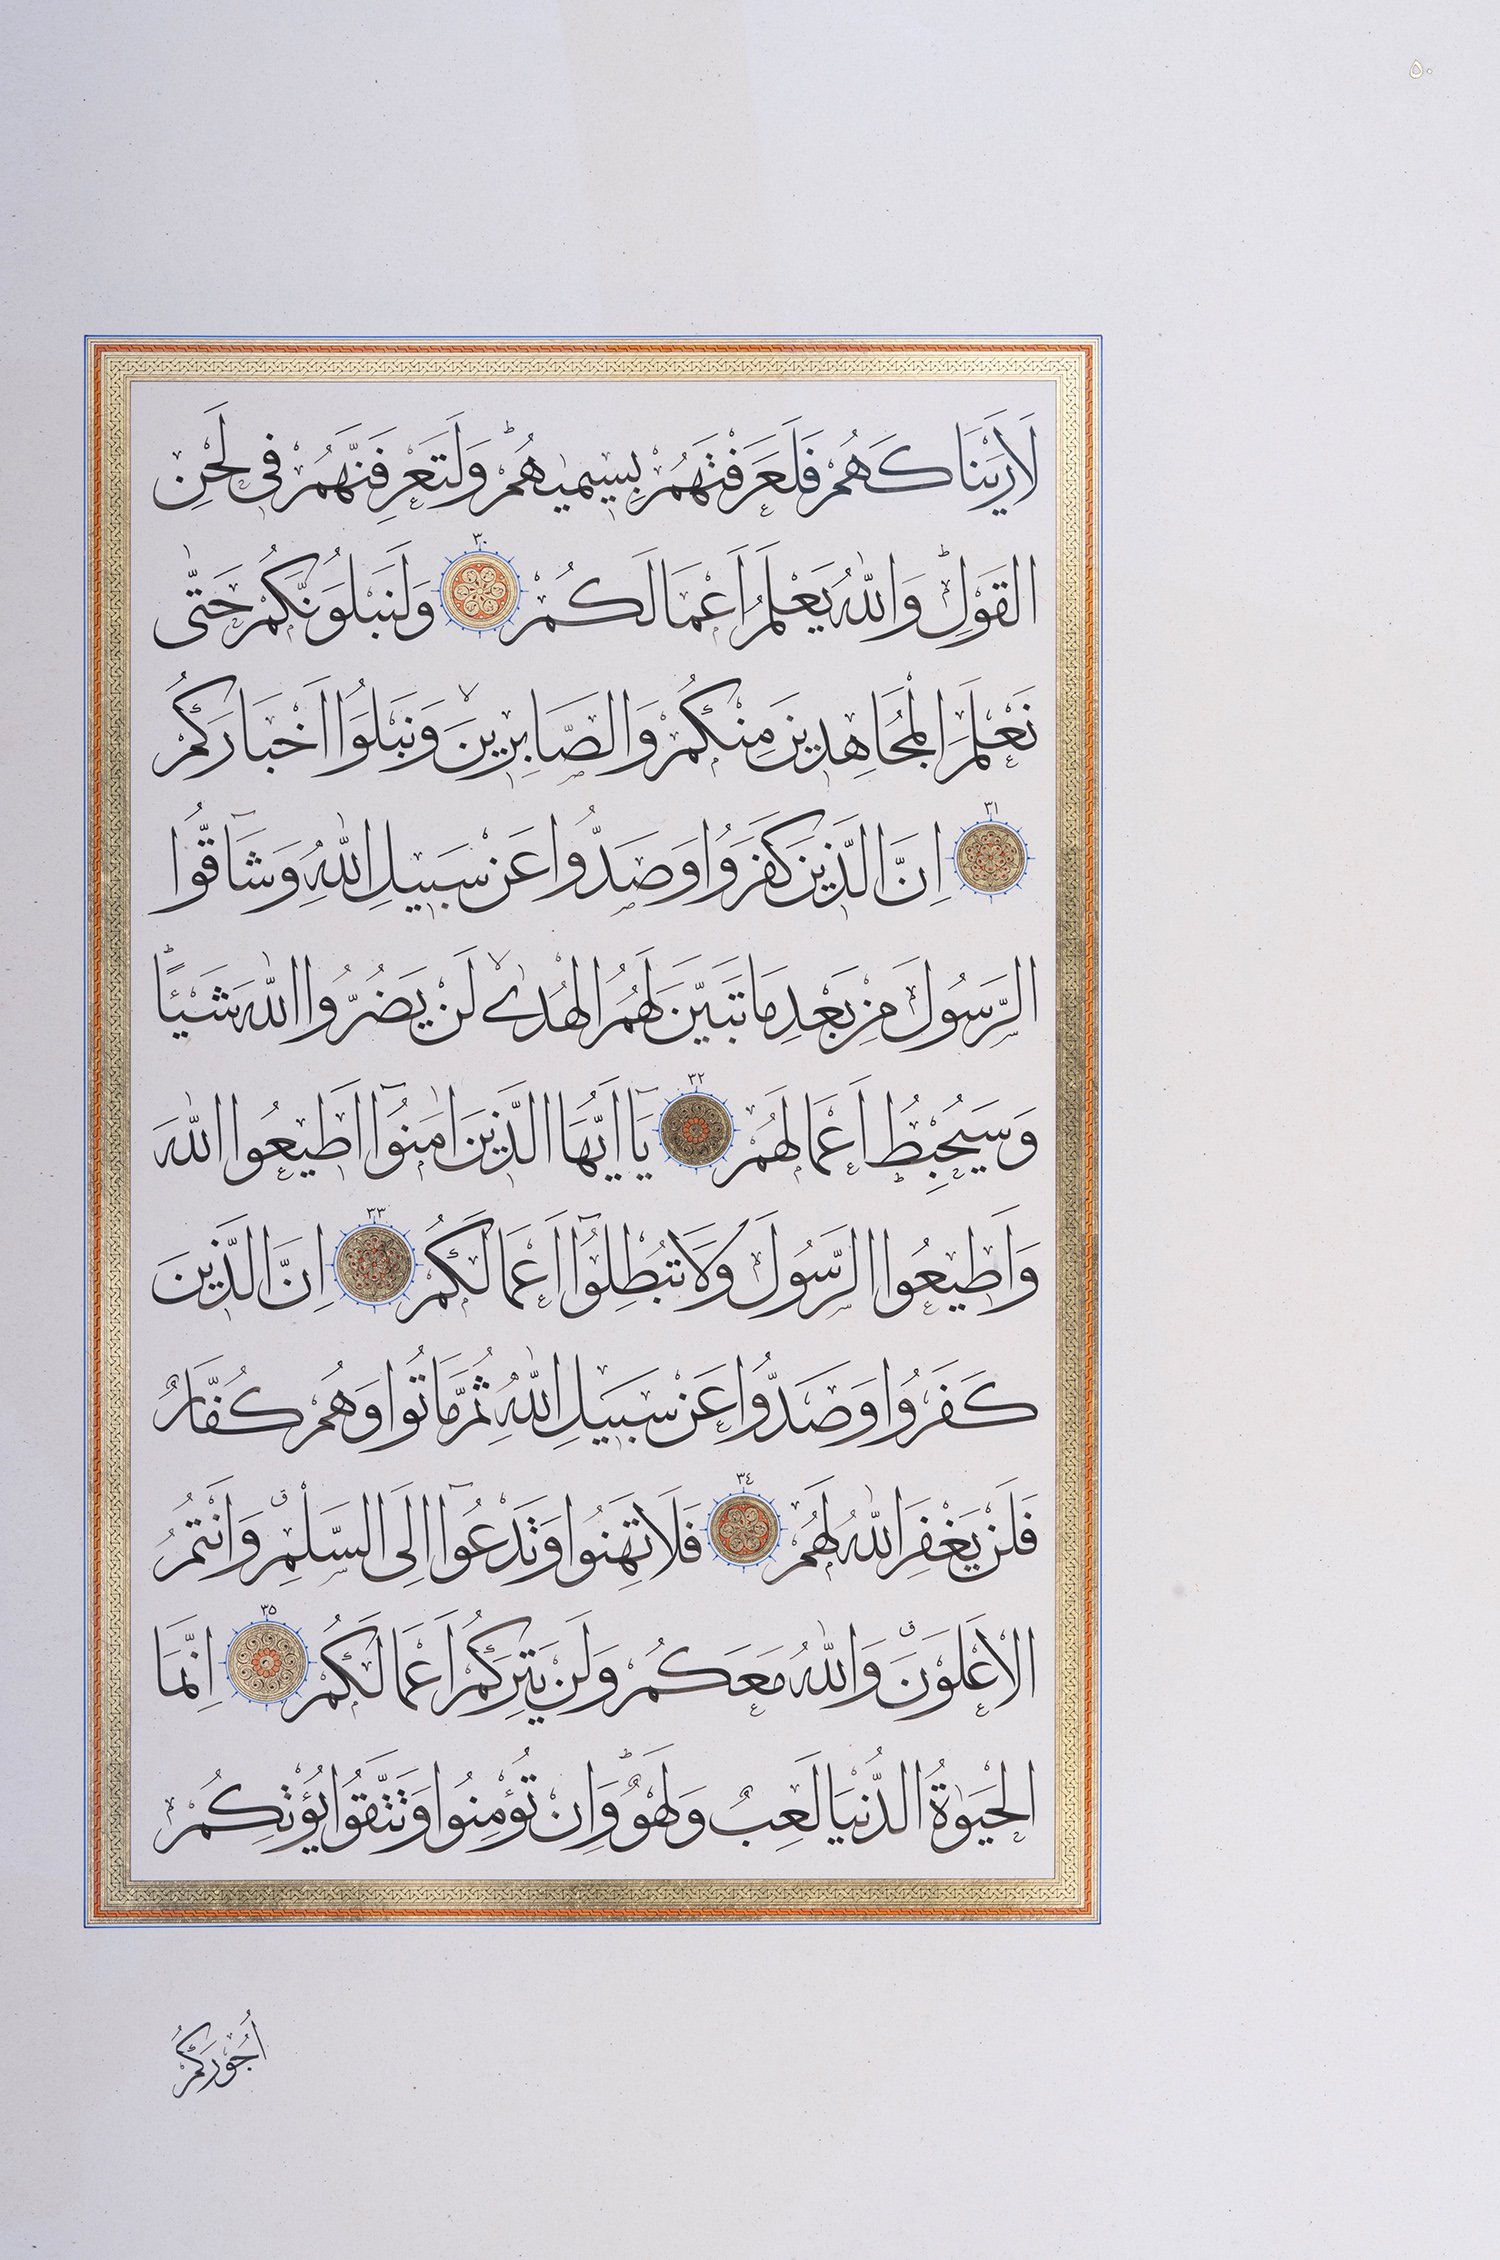 ٥٠
لَاَرَيْنَاكَهُمْ فَلَعَرَفْتَهُمْ بِسِيمٰيهُمْ وَلَتَعْرِفَنَّهُمْ فِى لَحْنِ
الْقَوْلِ وَاللّٰهُ يَعْلَمُ اَعْمَالَكُمْ ٣٠ وَلَنَبْلُوَنَّكُمْ حَتّٰى
نَعْلَمَ الْمُجَاهِدِينَ مِنْكُمْ وَالصَّابِرِينَ وَنَبْلُوَا اَخْبَارَكُمْ
٣١ اِنَّ الَّذِينَ كَفَرُوا وَصَدُّوا عَنْ سَبِيلِ اللّٰهِ وَشَاقُّوا
الرَّسُولَ مِنْ بَعْدِ مَا تَبَيَّنَ لَهُمُ الْهُدٰى لَنْ يَضُرُّوا اللّٰهَ شَيْئًا
وَسَيُحْبِطُ اَعْمَالَهُمْ ٣٢ يَآ اَيُّهَا الَّذِينَ اٰمَنُوٓا اَطِيعُوا اللّٰهَ
وَاَطِيعُوا الرَّسُولَ وَلَا تُبْطِلُوٓا اَعْمَالَكُمْ ٣٣ اِنَّ الَّذِينَ
كَفَرُوا وَصَدُّوا عَنْ سَبِيلِ اللّٰهِ ثُمَّ مَاتُوا وَهُمْ كُفَّارٌ
فَلَنْ يَغْفِرَ اللّٰهُ لَهُمْ ٣٤ فَلَا تَهِنُوا وَتَدْعُوٓا اِلَى السَّلْمِ وَاَنْتُمُ
الْاَعْلَوْنَ وَاللّٰهُ مَعَكُمْ وَلَنْ يَتِرَكُمْ اَعْمَالَكُمْ ٣٥ اِنَّمَا
الْحَيٰوةُ الدُّنْيَا لَعِبٌ وَلَهْوٌ وَاِنْ تُؤْمِنُوا وَتَتَّقُوا يُؤْتِكُمْ
اُجُورَكُمْ